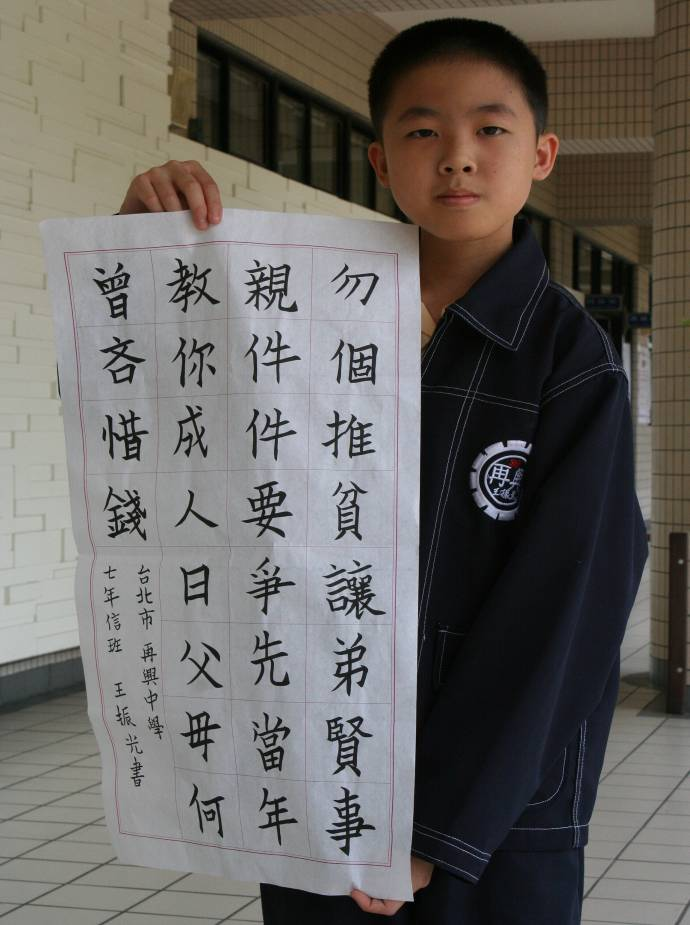 勿個推貧讓弟賢事
親件件要爭先當年
教你成人日父母何
曾吝惜錢
台北市 再興中學
七年信班 王振光書
再興